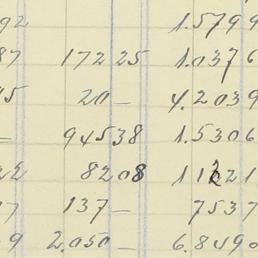 92 1.5799
87 172 25 1.0376
45 20 — 4.2039
— 945 38 1.5306
22 82 08 1 1221
7 137 — 7537
9 2.050 — 6.8490